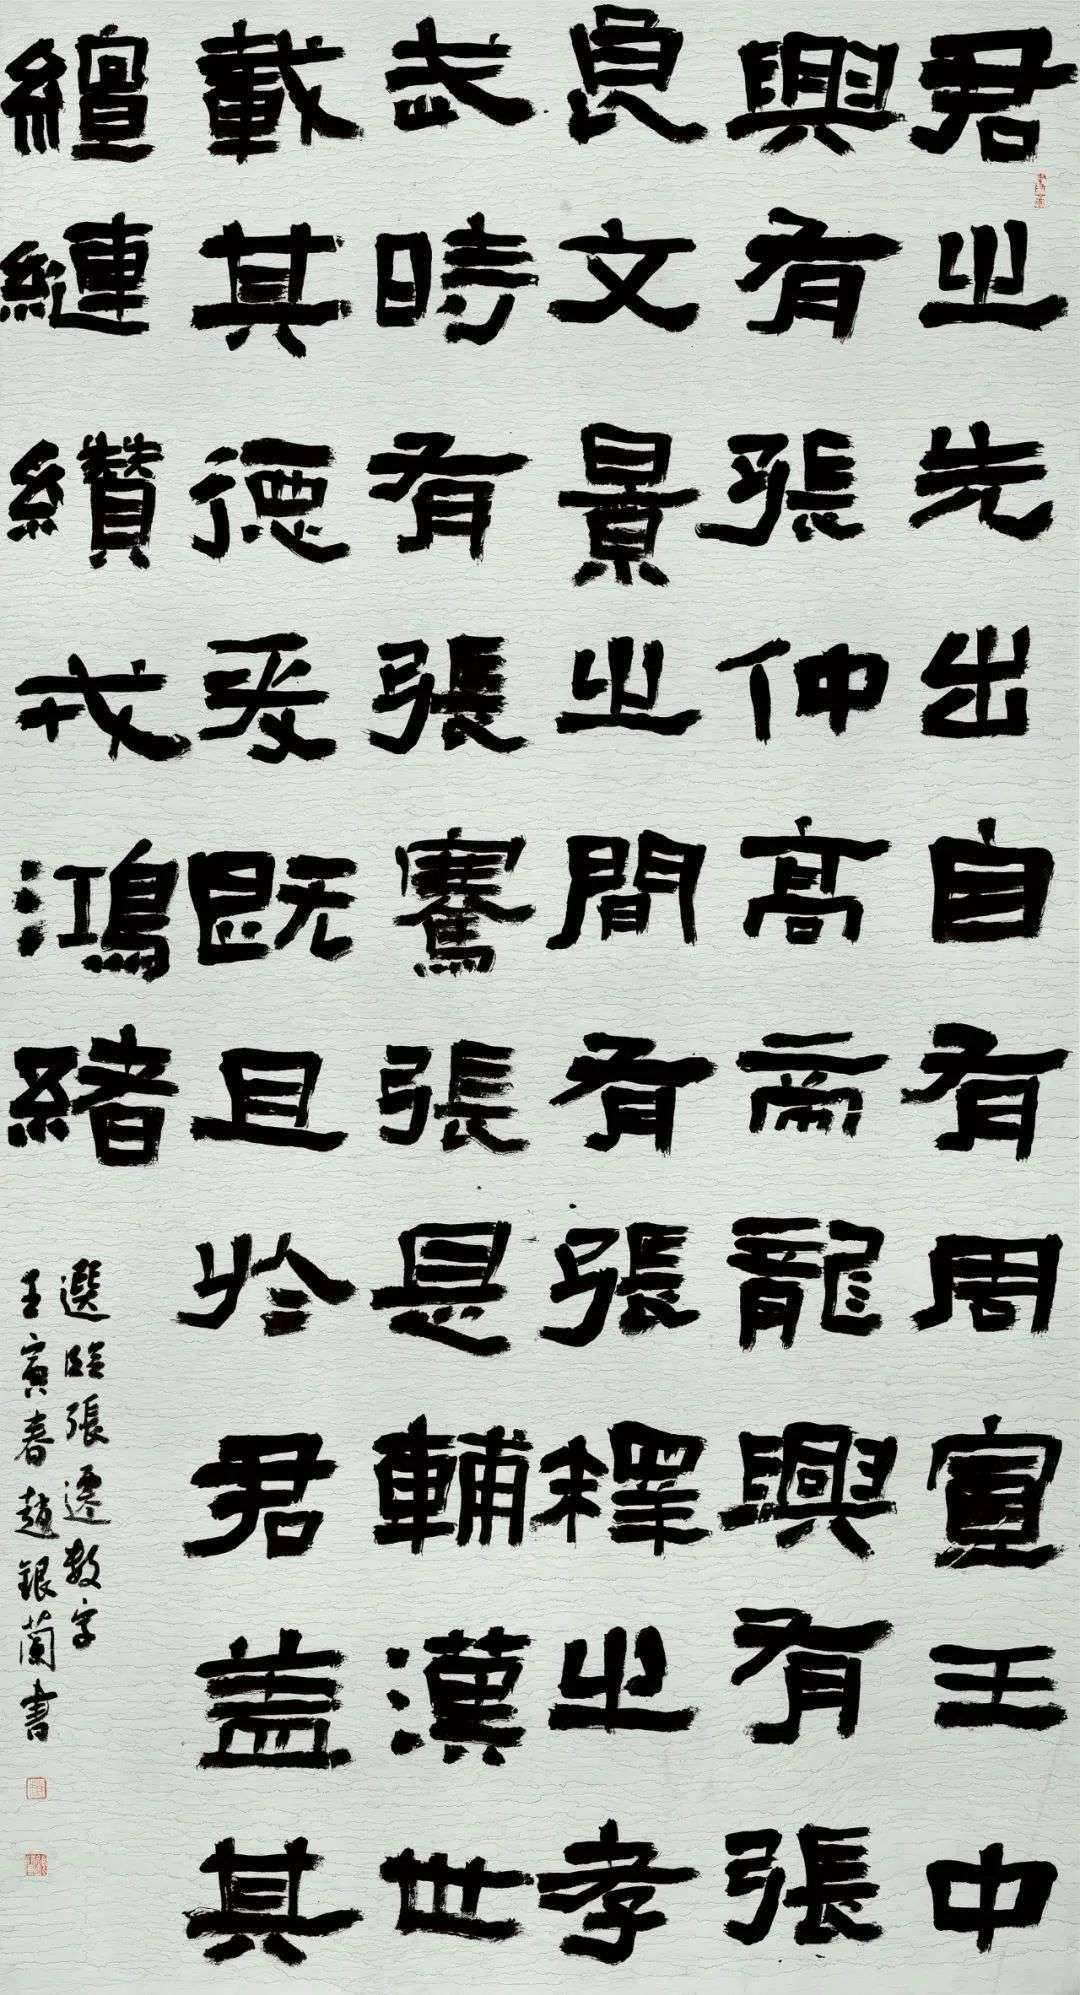 君之先出自有周宣王中
興有張仲高帝龍興有張
良文景之間有張釋之孝
武時有張騫張是輔漢世
載其德爰既且於君蓋其
繵縺纘戎鴻緒
選臨張遷數字
壬寅春趙銀蘭書